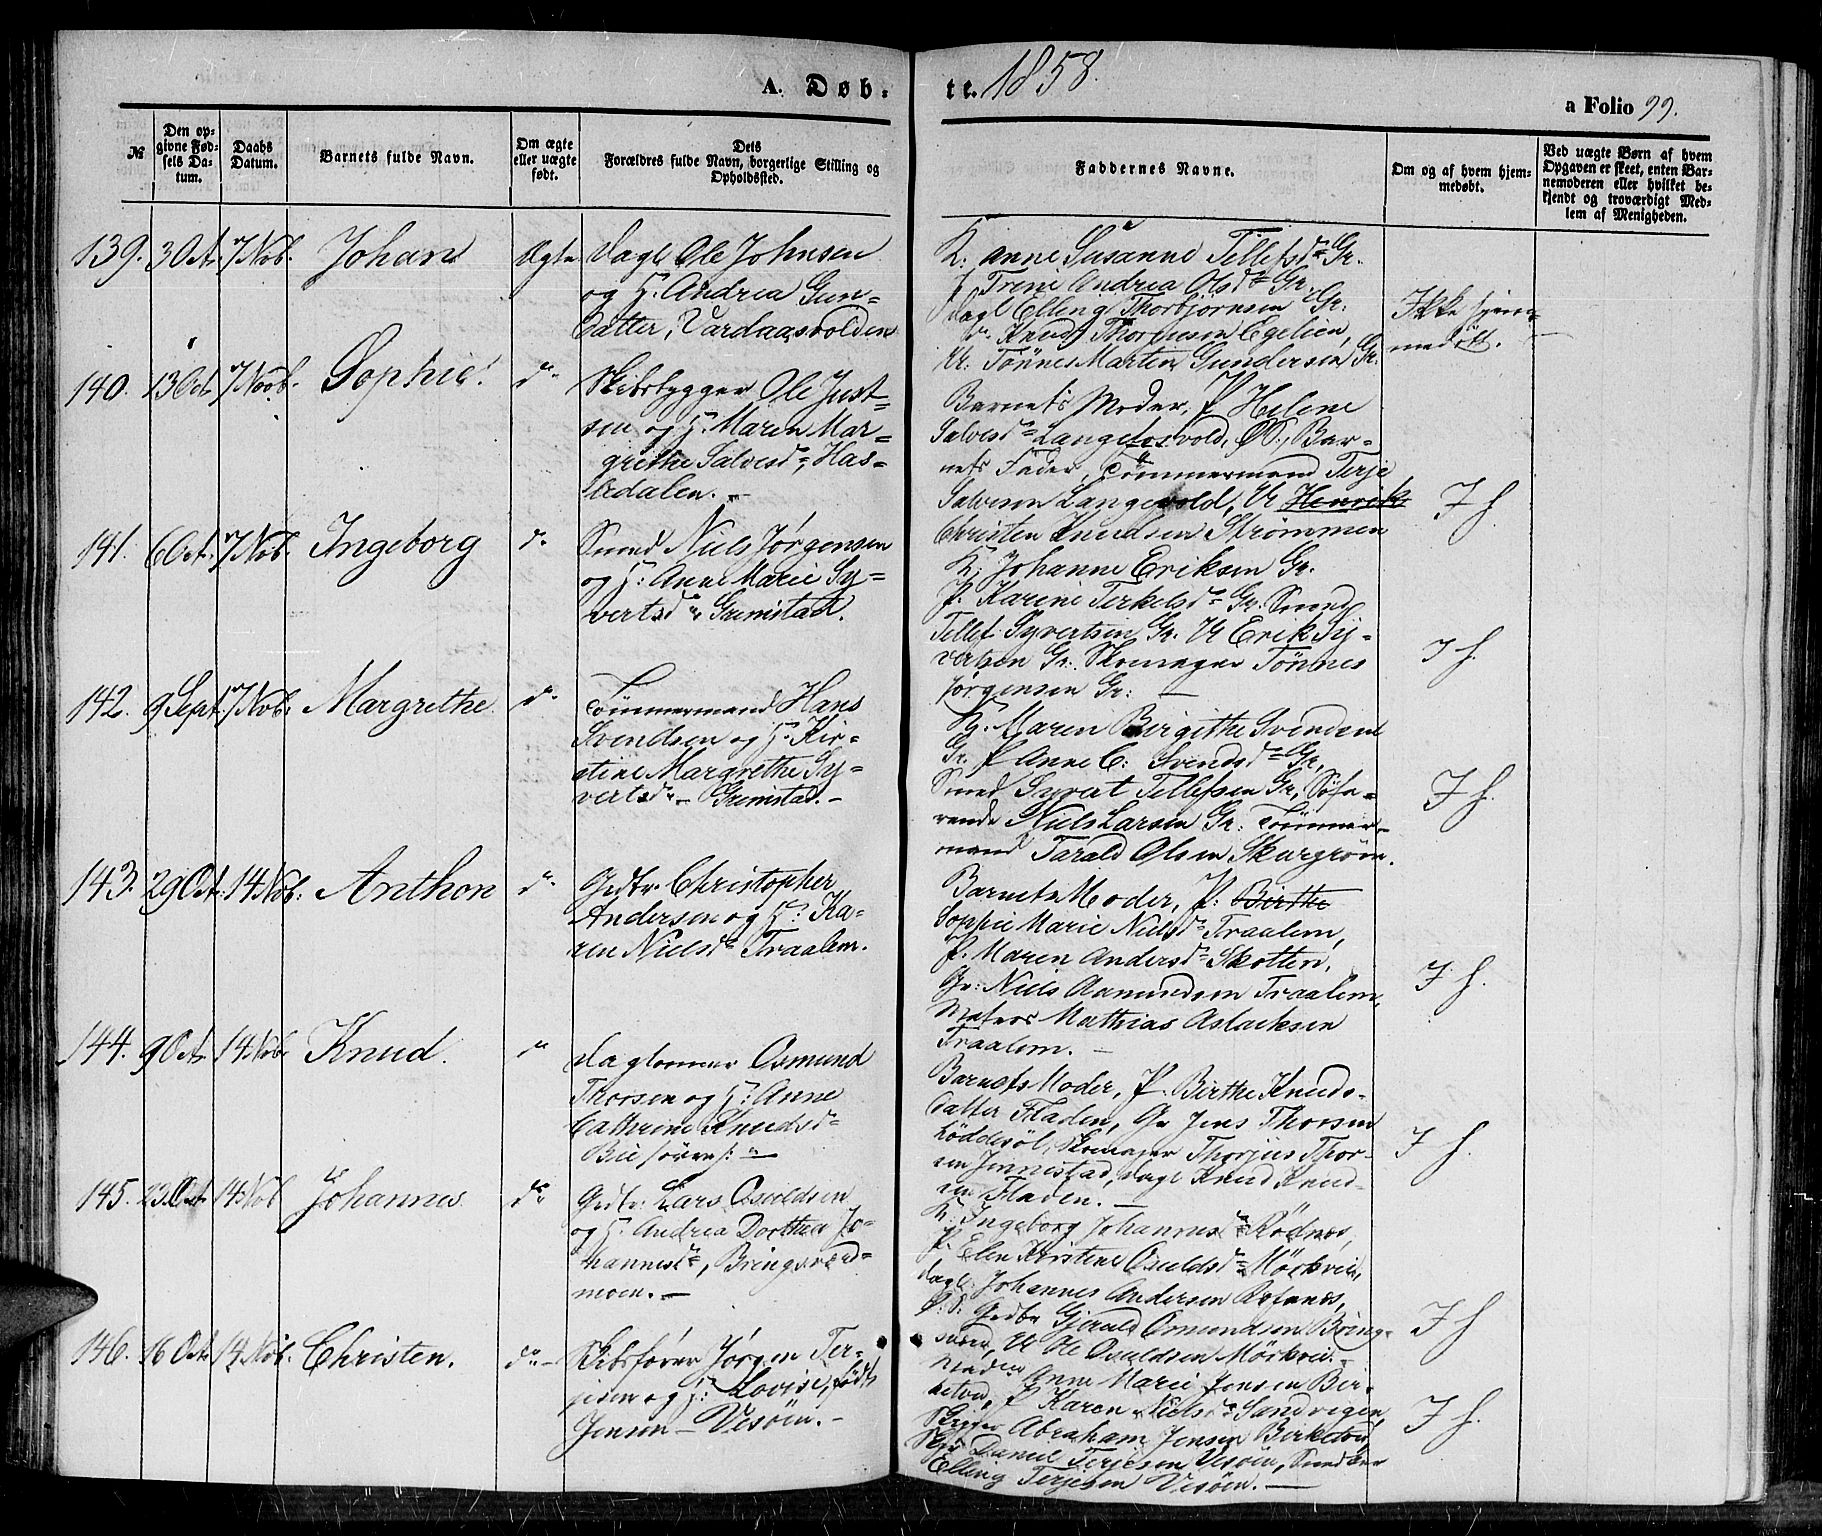 A. Døb-
te. 1858.
a Folio 99.
№
Den op-
givne Fød-
sels Da-
tum.
Daabs
Datum.
Barnets fulde Navn.
Om ægte
eller uægte
født.
Dets
Forældres fulde Navn, borgerlige Stilling og
Opholdssted.
Faddernes Navne.
Om og af hvem hjem-
medøbt.
Ved uægte Børn af hvem
Opgaven er skeet, enten Bar-
nemoderen eller hvilket be-
kjendt og troværdigt Med-
lem af Menigheden.
139. 3 Oct. 7 Nob. Johan Ægte
Dagl Ole Johnsen
og H. Andrea Gun-
datter, Vardaasvolden
K: Anne Susanne Tellefsdr Gr.
P Trine Andrea Olsdr Gr.
Dagl Elling Thorbjørnsen Gr.
Knud Egelien,
U. Tönnes Martin Gundersen Gr.
Ikke hjem-
medøbt.
140. 13 Oct. 7 Novb. Sophie. do
Skibsbygger Ole Just-
sen og H. Maren Mar-
grethe Salvesdr, Has-
ledalen. –
Barnets Moder, P Helene
Salvesdr Langefosvold, ØS., Bar-
nets Fader, Tömmermand Terje
Salvesen U Henrik
Christen Knudsen Strömmen
I h.
141. 6 Oct. 7 Nob. Ingeborg do
Smed Niels Jørgensen
og H: Anne Marie Sy-
vertsdr Grimstad.
K: Johanne Eriksen Gr.
P. Karine Terkelsdr Gr. Smed
Tellef Syvertsen Gr. U Erik Sy-
vertsen Gr: Skomager Tönnes
Jørgensen Gr: –
I h.
142. 9 Sept. 7 Nob: Margrethe do
Tömmermand Hans
Svendsen og H. Kir-
stine Margrethe Sy-
vertsdr – Grimstad. –
K: Maren Birgithe Svendsen
Gr. P Anne C: Svendsdr Gr,
Smed Syvert Tellefsen Gr, Söfa-
rende Niels Larsen Gr: Tömmer-
mand Tarald Olsen
I h.
143. 29 Oct. 14 Nob: Anthon do
Grdbr Christopher
Andersen og H: Ka-
ren Nielsdr Traalem.
Barnets Moder, P: Birthe
Sophie Marie Nielsdr Traalem,
P. Maren Andersdr Skotten,
Gr: Niels Aamundsen Traalem,
Matros Mathias Aslacksen
Traalem. –
I h.
144. 9 Oct. 14 Nob: Knud. do
Daglönner Osmund
Thorsen og H: Anne
Cathrine Knudsdr
Bie –
Barnets Moder, P. Birthe Knuds-
datter Fladen, Gr Jens Thorsen
Löddesöl, Skomager Thorjus Thor-
sen Jennestad, Dagl Knud Knud-
sen Fladen. –
I h.
145. 23 Oct. 14 Nob Johannes do
Grdbr. Lars Osuldsen
og H. Andrea Dorthea Jo-
hannesdr, Bringsværd-
moen. –
K. Ingeborg Johannesdr Rödnes,
P. Elen Kirstine Osuldsdr Mörkvei,
Dagl. Johannes Andersen
Grdbr Gjerald Osmundsen Brings-
sværd, U Ole Osuldsen Mörkvei. –
I h
146. 16 Oct. 14 Nob: Christen. do –
Skibsfører Jørgen Ter-
jesen og H: Lovise, født
Jensen – Vesöen. –
Anne Marie Jensen Bir-
ketvei, P Karen Nielsdr Sandvigen,
Skipper Abraham Jensen Birketvei,
Daniel Terjesen Vesöen,
Elling Terjesen Vesöen. –
I h.